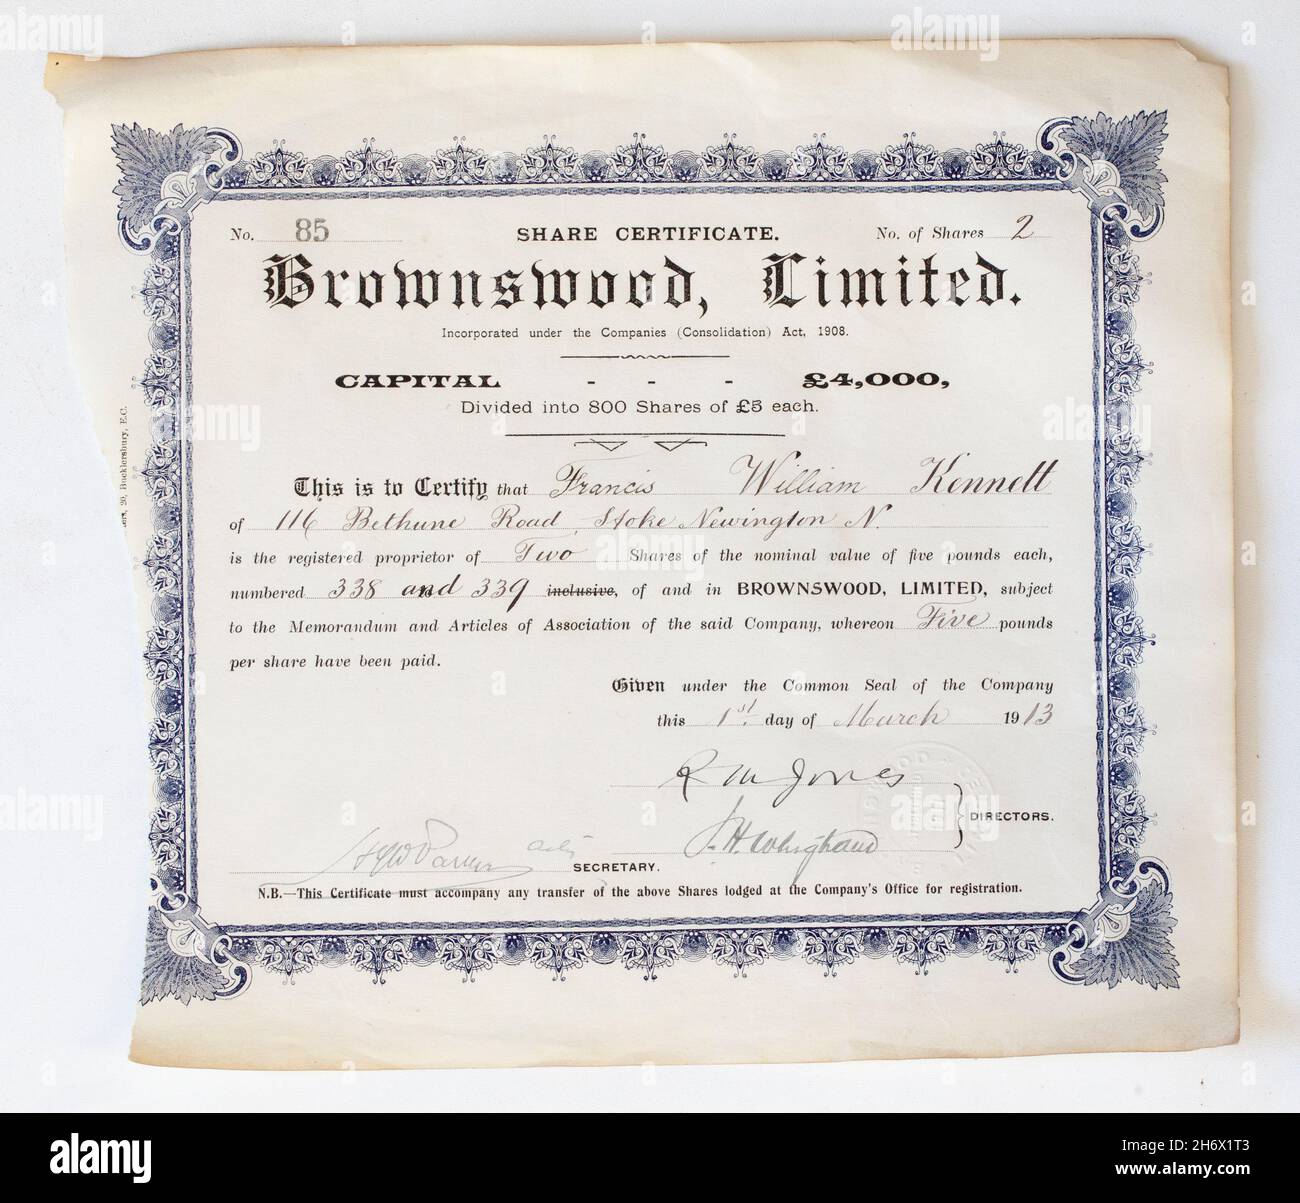 No. 85 SHARE CERTIFICATE. No. of Shares 2
Brownswood, Limited.
Incorporated under the Companies (Consolidation) Act, 1908.
CAPITAL - - - £4,000,
Divided into 800 Shares of £5 each.
This is to Certify that Francis William Kennett
of 116 Bethune Road Stoke Newington N.
is the registered proprietor of Two Shares of the nominal value of five pounds each,
numbered 338 and 339 inclusive, of and in BROWNSWOOD, LIMITED, subject
to the Memorandum and Articles of Association of the said Company, whereon Five pounds
per share have been paid.
Given under the Common Seal of the Company
this 1st. day of March 1913
R M Jones
DIRECTORS.
SECRETARY.
N.B.—This Certificate must accompany any transfer of the above Shares lodged at the Company's Office for registration.
20, Bucklersbury, E.C.
alamy
Image ID: 2H6X1T3
www.alamy.com